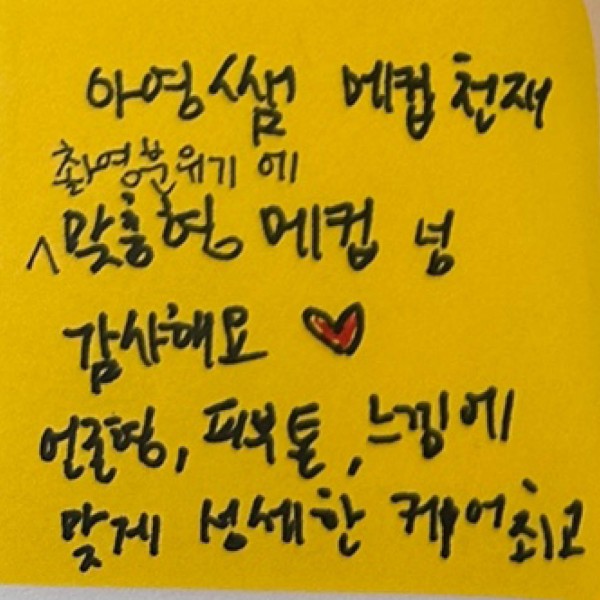 아영쌤 메컵 천재
촬영분위기 에
^맞춤형 메컵 넘
감사해요 ♥
얼굴형, 피부톤, 느낌에
맞게 섬세한 케어 최고